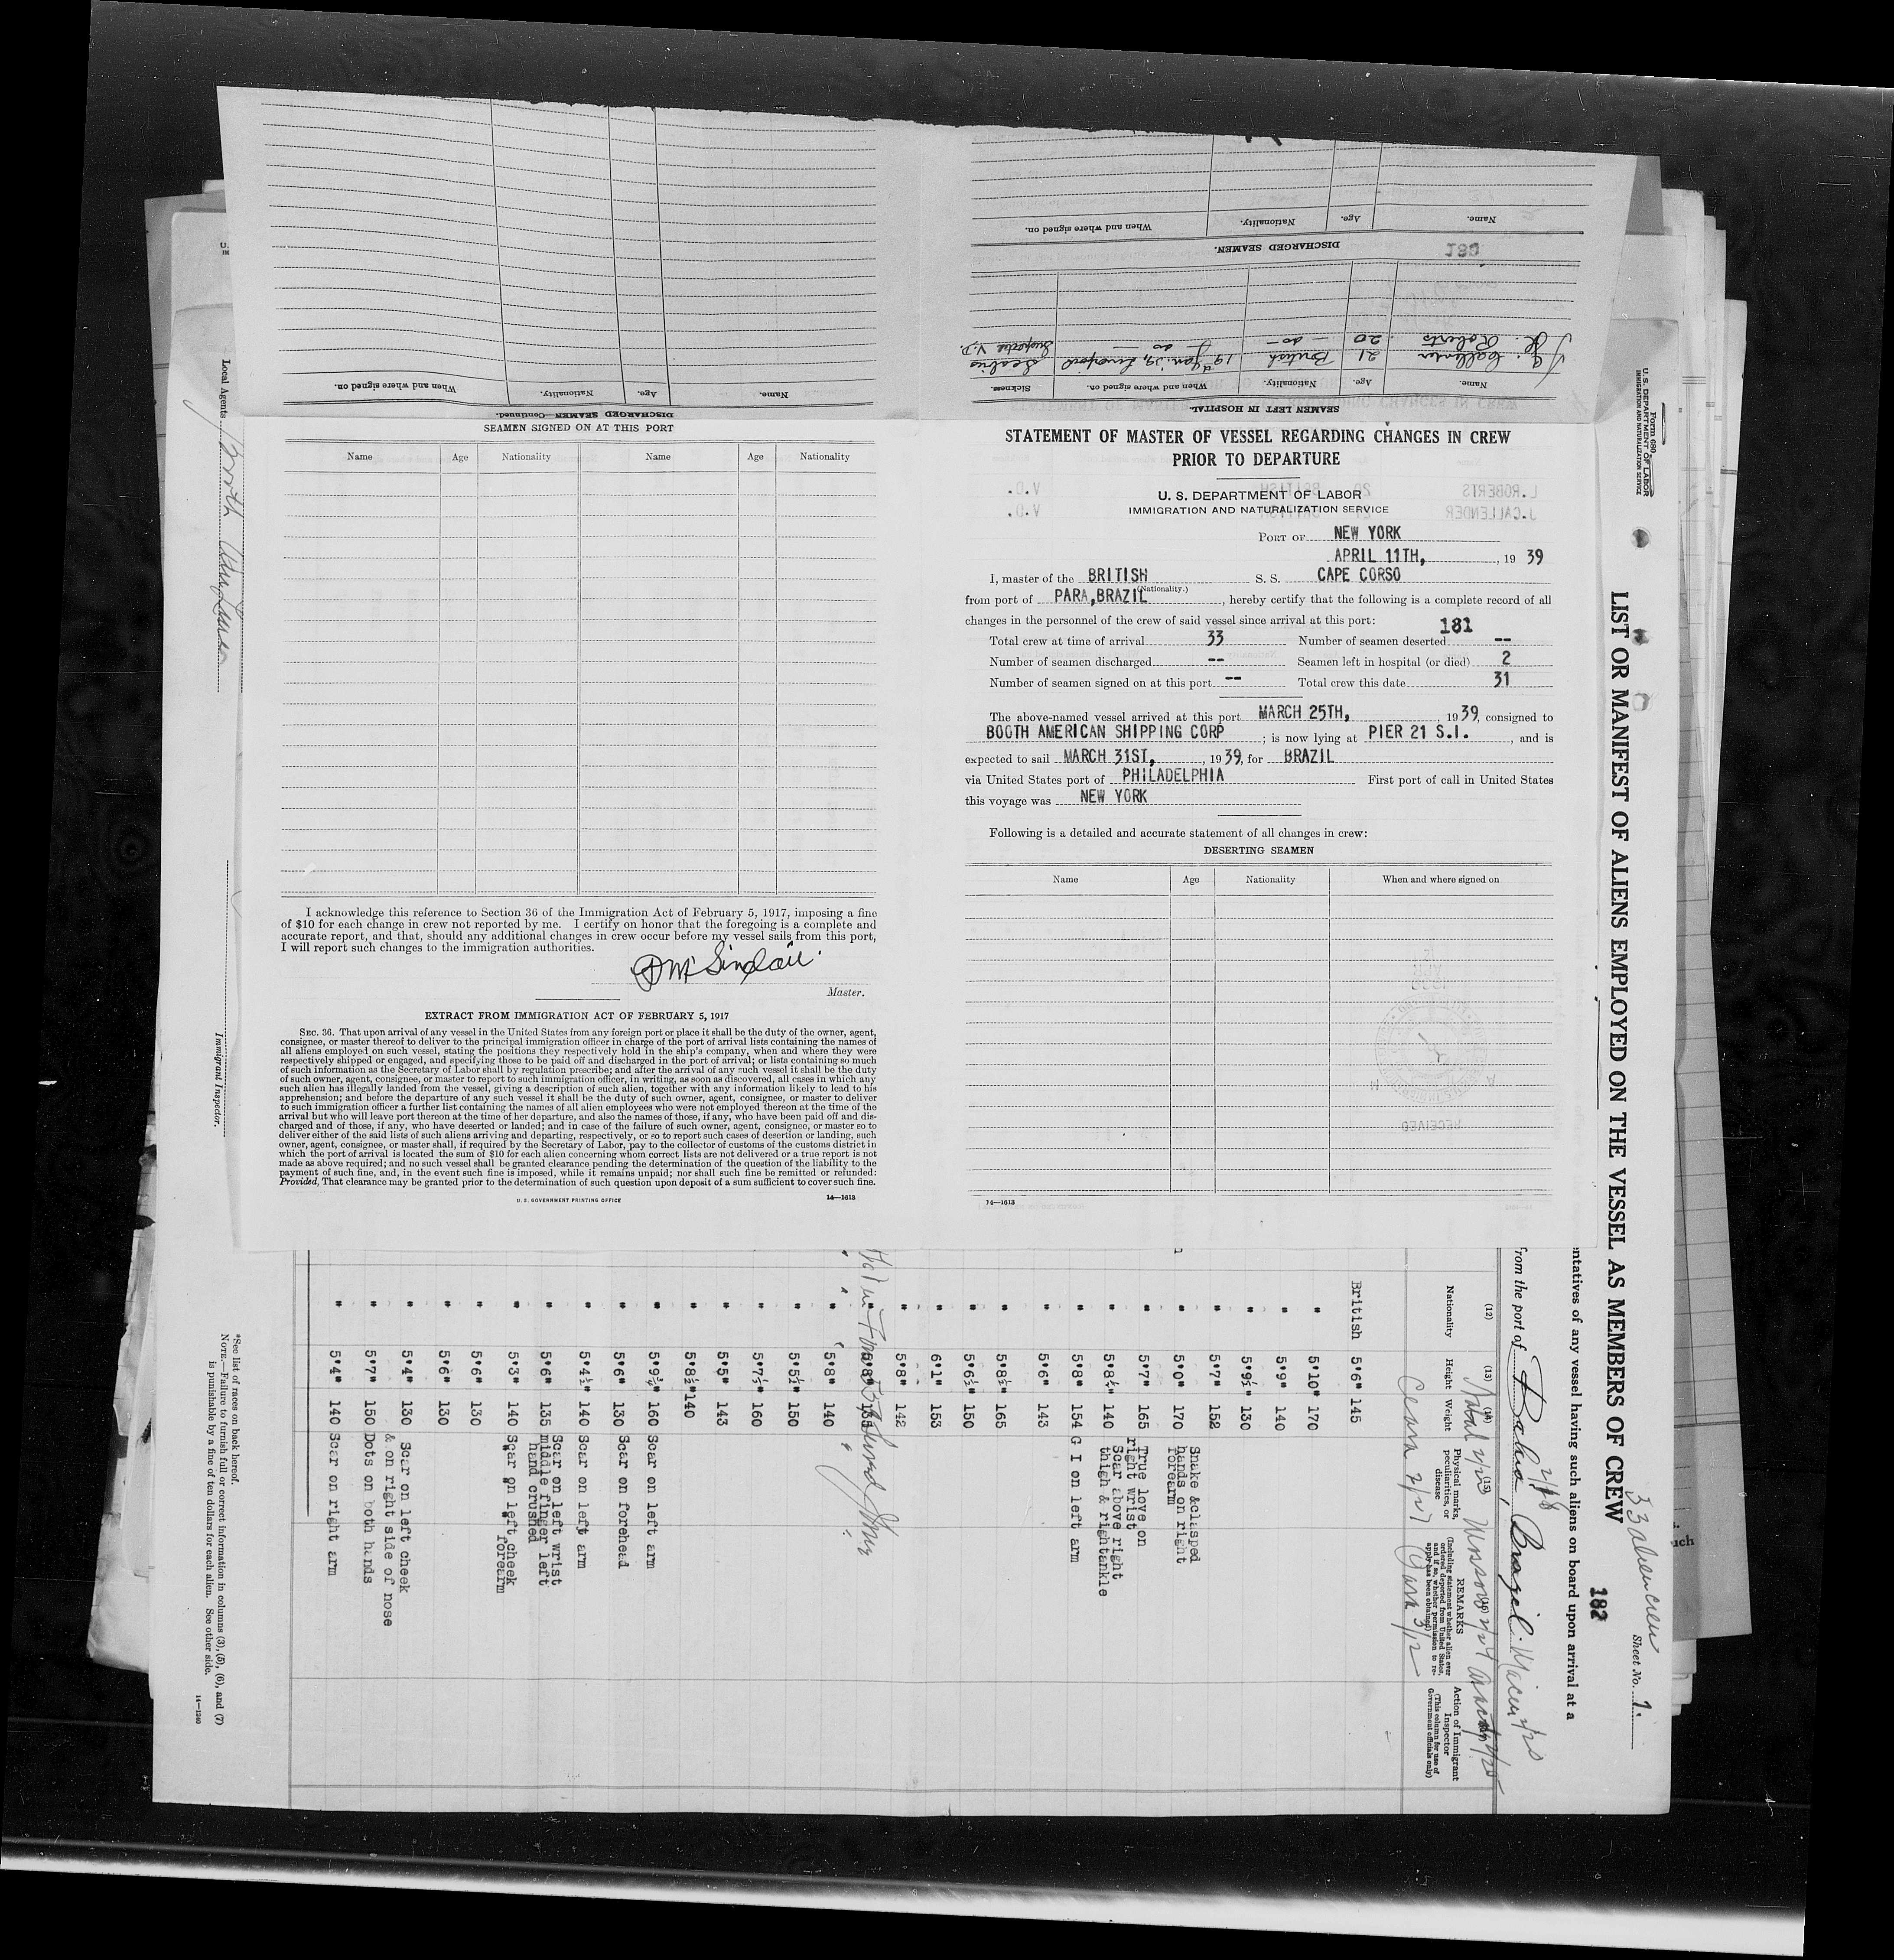 Name.
Age.
Nationality.
When and where signed on.
DISCHARGED SEAMEN.
180
J. Callender 21 British 19 Jan. '39, Liverpool Scabies
L. Roberts 20 — do — — do — Suspected V.D.
Name. Age. Nationality. When and where signed on. Sickness.
SEAMEN LEFT IN HOSPITAL.
Name. Age. Nationality. When and where signed on.
DISCHARGED SEAMEN—Continued.
SEAMEN SIGNED ON AT THIS PORT
Name Age Nationality Name Age Nationality
I acknowledge this reference to Section 36 of the Immigration Act of February 5, 1917, imposing a fine
of $10 for each change in crew not reported by me. I certify on honor that the foregoing is a complete and
accurate report, and that, should any additional changes in crew occur before my vessel sails from this port,
I will report such changes to the immigration authorities.
Sinclair.
Master.
EXTRACT FROM IMMIGRATION ACT OF FEBRUARY 5, 1917
SEC. 36. That upon arrival of any vessel in the United States from any foreign port or place it shall be the duty of the owner, agent,
consignee, or master thereof to deliver to the principal immigration officer in charge of the port of arrival lists containing the names of
all aliens employed on such vessel, stating the positions they respectively hold in the ship's company, when and where they were
respectively shipped or engaged, and specifying those to be paid off and discharged in the port of arrival; or lists containing so much
of such information as the Secretary of Labor shall by regulation prescribe; and after the arrival of any such vessel it shall be the duty
of such owner, agent, consignee, or master to report to such immigration officer, in writing, as soon as discovered, all cases in which any
such alien has illegally landed from the vessel, giving a description of such alien, together with any information likely to lead to his
apprehension; and before the departure of any such vessel it shall be the duty of such owner, agent, consignee, or master to deliver
to such immigration officer a further list containing the names of all alien employees who were not employed thereon at the time of the
arrival but who will leave port thereon at the time of her departure, and also the names of those, if any, who have been paid off and dis-
charged and of those, if any, who have deserted or landed; and in case of the failure of such owner, agent, consignee, or master so to
deliver either of the said lists of such aliens arriving and departing, respectively, or so to report such cases of desertion or landing, such
owner, agent, consignee, or master shall, if required by the Secretary of Labor, pay to the collector of customs of the customs district in
which the port of arrival is located the sum of $10 for each alien concerning whom correct lists are not delivered or a true report is not
made as above required; and no such vessel shall be granted clearance pending the determination of the question of the liability to the
payment of such fine, and, in the event such fine is imposed, while it remains unpaid; nor shall such fine be remitted or refunded:
Provided, That clearance may be granted prior to the determination of such question upon deposit of a sum sufficient to cover such fine.
U. S. GOVERNMENT PRINTING OFFICE 14—1613
STATEMENT OF MASTER OF VESSEL REGARDING CHANGES IN CREW
PRIOR TO DEPARTURE
U. S. DEPARTMENT OF LABOR
IMMIGRATION AND NATURALIZATION SERVICE
PORT OF NEW YORK
APRIL 11TH, , 19 39
I, master of the BRITISH S. S. CAPE CORSO
(Nationality.)
from port of PARA, BRAZIL , hereby certify that the following is a complete record of all
changes in the personnel of the crew of said vessel since arrival at this port:
181
Total crew at time of arrival 33 Number of seamen deserted --
Number of seamen discharged -- Seamen left in hospital (or died) 2
Number of seamen signed on at this port -- Total crew this date 31
The above-named vessel arrived at this port MARCH 25TH, , 19 39, consigned to
BOOTH AMERICAN SHIPPING CORP ; is now lying at PIER 21 S.I. , and is
expected to sail MARCH 31ST, , 19 39, for BRAZIL
via United States port of PHILADELPHIA First port of call in United States
this voyage was NEW YORK
Following is a detailed and accurate statement of all changes in crew:
DESERTING SEAMEN
Name Age Nationality When and where signed on
14—1613
L. ROBERTS 20 BRITISH V.D.
J. CALLENDER 21 BRITISH V.D.
RECEIVED
Form 680
U. S. DEPARTMENT OF LABOR
IMMIGRATION AND NATURALIZATION SERVICE
LIST OR MANIFEST OF ALIENS EMPLOYED ON THE VESSEL AS MEMBERS OF CREW
33 alien crew
Sheet No. 1.
182
ntatives of any vessel having such aliens on board upon arrival at a
from the port of Bahia, Brazil.
(12) (13) (14) (15) (16)
Nationality
Height
Weight
Physical marks, peculiarities, or disease
REMARKS
(Including statement whether alien ever
ordered deported from United States,
and if so, whether permission to re-
apply has been obtained)
Action of Immigrant
Inspector
(This column for use of
Government officials only)
British 5'6" 145
" 5'10" 170
" 5'9" 140
" 5'9½" 130
" 5'7" 152
" 5'0" 170 Snake & clasped
hands on right
forearm
" 5'7" 165 True love on
right wrist
" 5'8¼" 140 Scar above right
thigh & right ankle
" 5'8" 154 G I on left arm
" 5'6" 143
" 5'8½" 165
" 5'6½" 150
" 6'1" 153
" 5'8" 142
" 5'8" 140
" 5'5½" 150
" 5'7½" 160
" 5'5" 143
" 5'8½" 140
" 5'9¾" 160 Scar on left arm
" 5'6" 130 Scar on forehead
" 5'4½" 140 Scar on left arm
" 5'6" 135 Scar on left wrist
middle finger left
hand crushed
" 5'3" 140 Scar on left cheek
" " forearm
" 5'6" 130
" 5'6" 130
" 5'4" 130 Scar on left cheek
& on right side of nose
" 5'7" 150 Dots on both hands
" 5'4" 140 Scar on right arm
Local Agents
Immigrant Inspector.
*See list of races on back hereof.
NOTE.—Failure to furnish full or correct information in columns (3), (5), (6), and (7)
is punishable by a fine of ten dollars for each alien. See other side.
14—1240